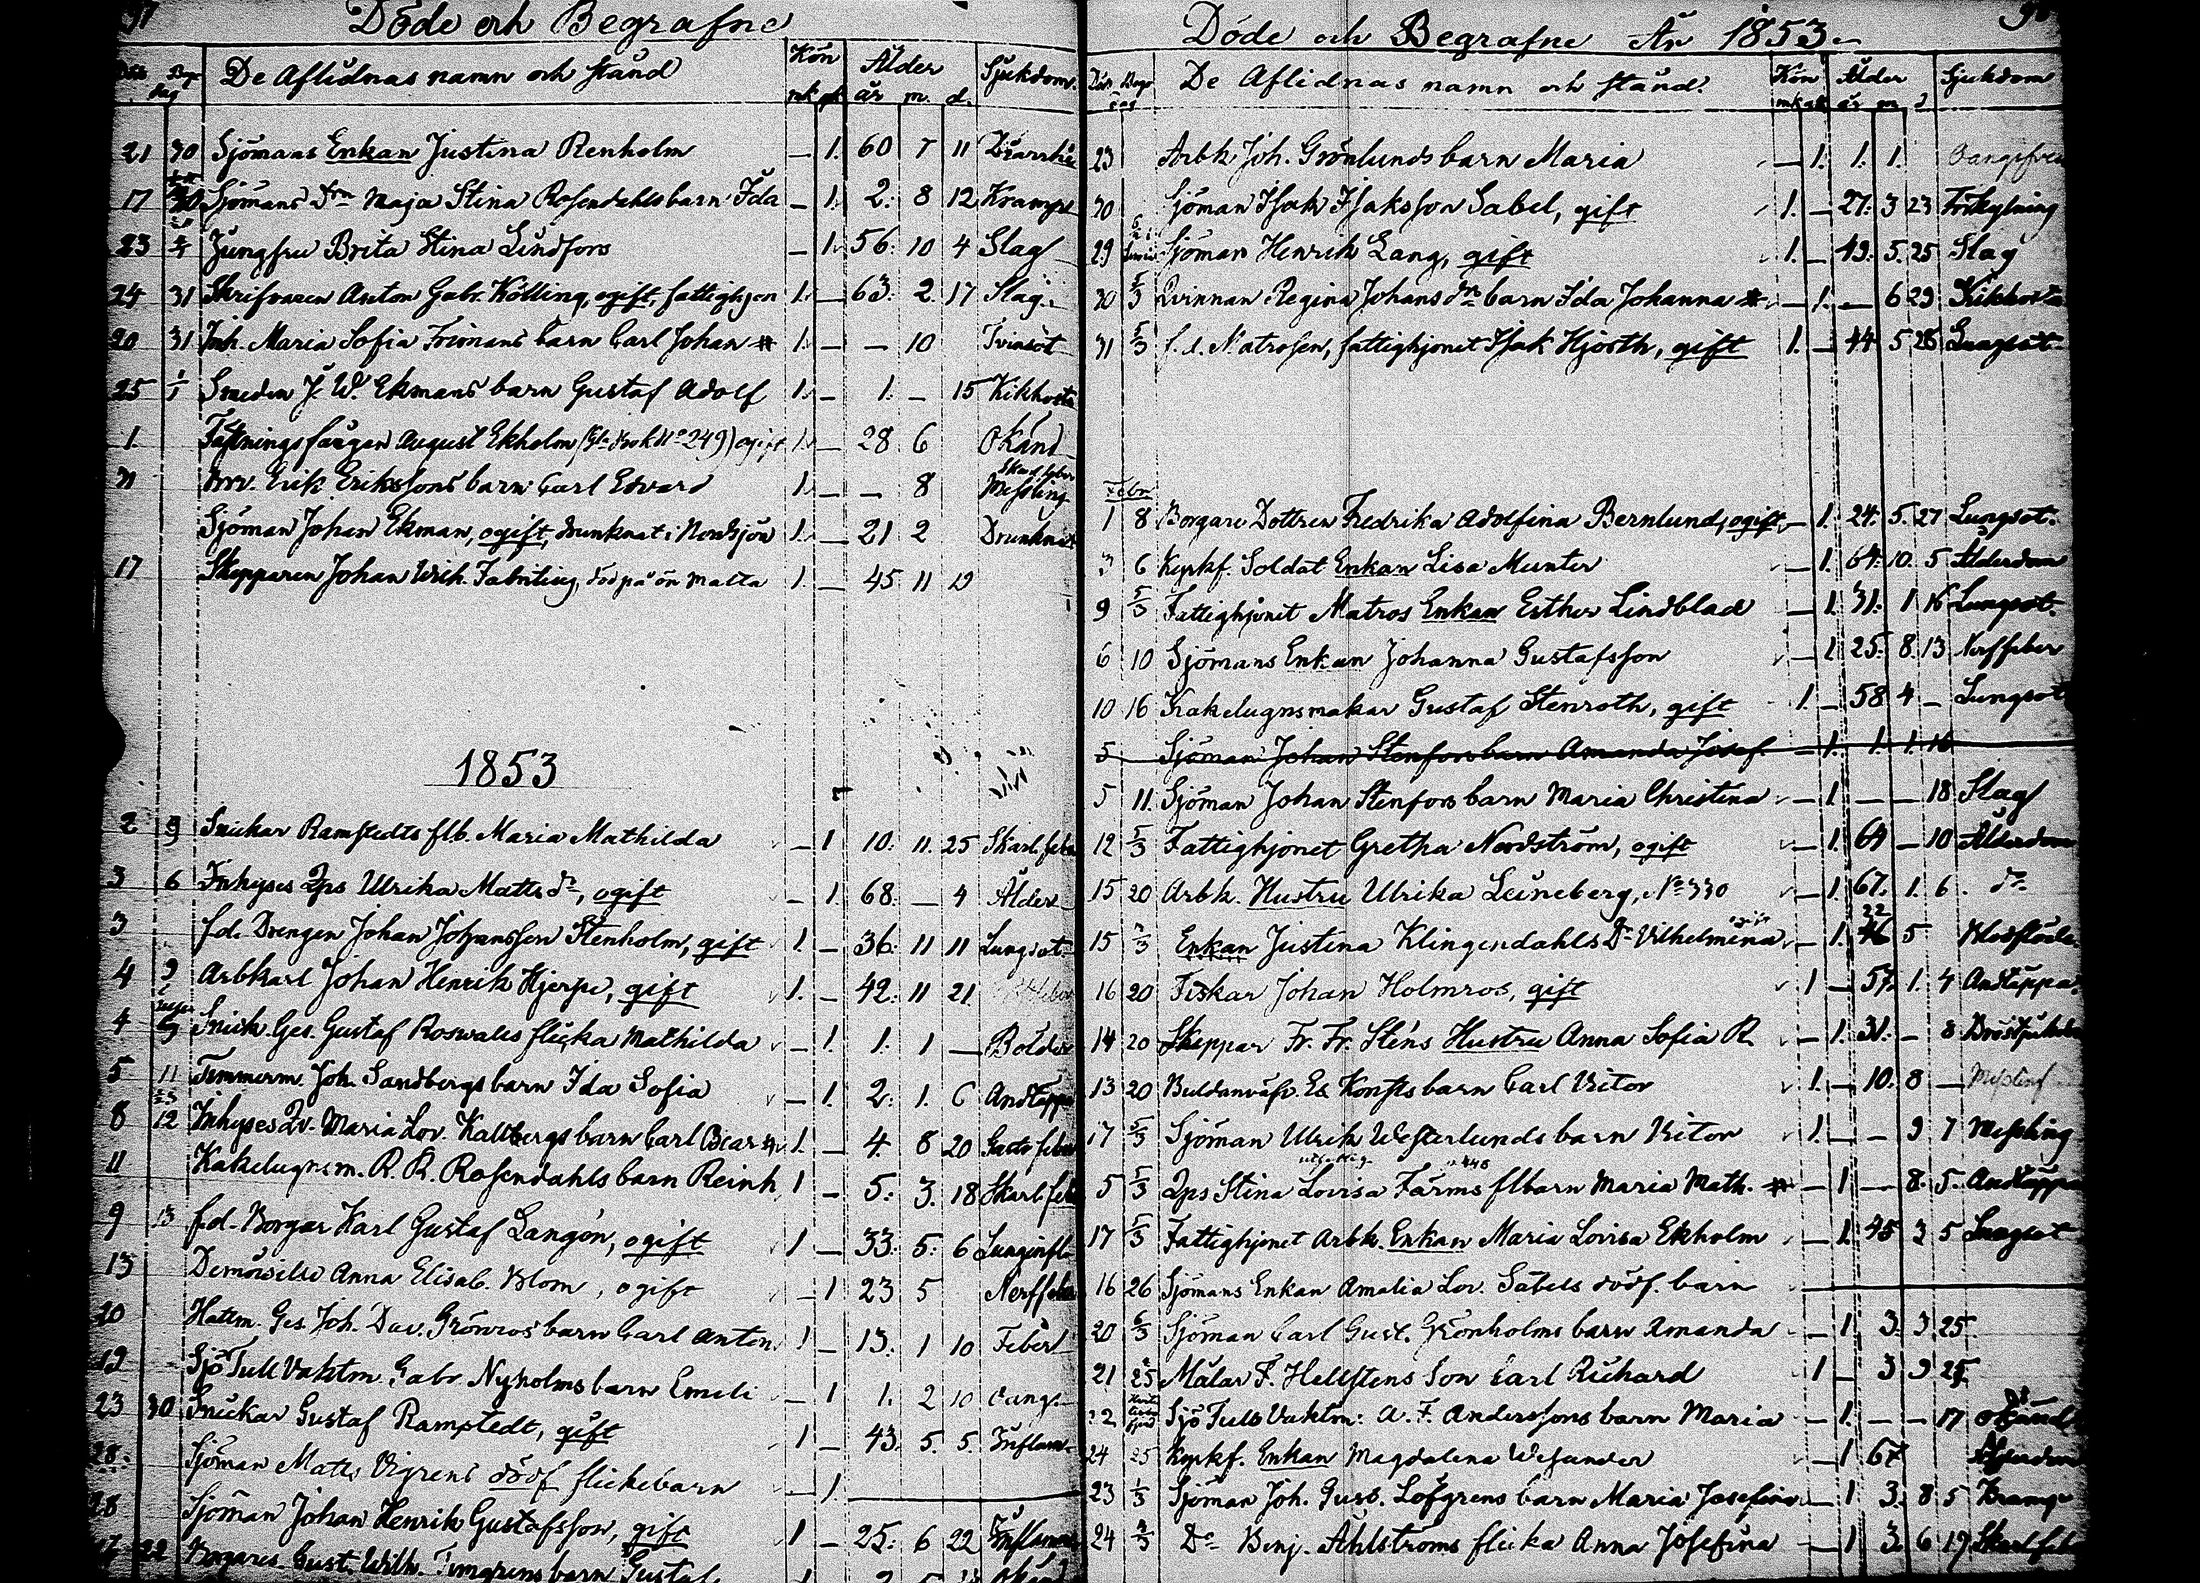 97
Döde och Begrafne
Död Begr dag De Aflidnas namn och stånd Kön mk qk Ålder år m. d. Sjukdom
21 30 Sjömans Enkan Justina Renholm — 1. 60 7 11 Diarrhé
17 Sjömans Drn Maja Stina Rosendahls barn Ida — 1. 2. 8 12 Kramp
23 Jungfru Brita Stina Lindfors — 1. 56. 10 4 Slag
24 31 Skrifvaren Anton Gabr. Kölling, ogift, fattighjon 1. — 63. 2. 17 Slag.
20 31 Inh. Maria Sofia Frimans barn Carl Johan # 1. — — 10 Tvinsot
25 1/1 Smeden J. W. Ekmans barn Gustaf Adolf 1. — 1. — 15 Kikhosta
1. Fästningsfången August Ekholm, 249) ogift 1. — 28 6 Okänd
31 Erik Erikssons barn Carl Edvard 1. — — 8 Messling
Sjöman Johan Ekman, ogift, drunknat i Nordsjön 1. — 21 2 Drunknat
17 Skepparen Johan Wilh. död på ön Malta 1. — 45 11 19
1853
2 9 Snickar Ramstedts flb. Maria Mathilda — 1 10. 11. 25 Skarl.feber
3 6 Inhyses Qps Ulrika Matts dr, ogift — 1. 68. — 4 Ålder
3 f.d. Drengen Johan Johansson Stenholm, gift 1. — 36. 11 11 Lungsot
4 9 Arbkarl Johan Henrik Hjerpe, gift 1. — 42. 11 21.
4 9 Snick. Ges. Gustaf Roswalls flicka Mathilda — 1. 1. 1 — Bölder
5 11 Timmerm. Joh. Sandbergs barn Ida Sofia — 1. 2. 1. 6 Andtäppa
8 12 Inhyses Qv. Maria Lov. Kallbergs barn Carl Oscar # 1. — 4. 8 20
11 Kakelugnsm. R. R. Rosendahls barn Reinh. 1 — 5. 3. 18 Skarl.feb
9 13 f.d. Borgar Karl Gustaf Langén, ogift 1 — 33. 5. 6 Lunginfl.
13 Demoiselle Anna Elisab. Blom, ogift — 1 23 5 Nerffeber
20 Hattm. Ges. Joh. Dav. Grönros barn Carl Anton 1 — 13. 1 10 Feber
19 Sjö Tull Vaktm. Gabr. Nyholms barn Emeli — 1 1. 2 10
23 30 Snickar Gustaf Ramstedt, gift 1 — 43. 5. 5. Inflam.
28. Sjöman Matts Vigrens dödf flickebarn — 1.
28 Sjöman Johan Henrik Gustafsson, gift 1 — 25. 6 22 Inflam
17 22 Borgares Gust. Wilh. barn Gustaf
Döde och Begrafne År 1853.
Död Begr dag De Aflidnas namn och stånd. Kön mk qk Ålder år m. d Sjukdom
23 Arbk Joh. Grönlunds barn Maria — 1. 1. 1.
30 Sjöman Isak Isaksson Sabel, gift 1. — 27. 3 23 Förkylning
29 Sjöman Henrik Lang, gift 1. — 49. 5. 25 Slag
30 5/3 Qvinnan Regina Johans drs barn Ida Johanna # — 1. — 6 29 Kikhosta
31 5/3 f.d. Matrosen, fattighjonet Isak Hjorth, gift 1. — 44 5 28 Lungsot
Febr.
1 8 Borgare Dottren Fredrika Adolfina Bernlund, ogift — 1. 24. 5. 27 Lungsot.
3 6 Kyrkf. Soldat Enkan Lisa Munter — 1. 64. 10. 5 Ålderdom
9 5/3 Fattighjonet Matros Enkan Esther Lindblad — 1. 31. 1 16 Lungsot.
6 10 Sjömans Enkan Johanna Gustafsson — 1. 25. 8. 13 Nerffeber
10 16 Kakelugnsmakar Gustaf Stenroth, gift 1. — 58 4 — Lungsot
5 Sjöman Johan Stenfors barn Amanda Josef. — 1. 1. 1. 16
5 11. Sjöman Johan Stenfors barn Maria Christina — 1. — — 18 Slag
12 5/3 Fattighjonet Gretha Nordström, ogift — 1. 64 — 10 Ålderdom
15 20 Arbk. Hustru Ulrika Leineberg, No 330 — 1. 67. 1. 6. do
15 5/3 Enkan Justina Klingendahls Dr Vilhelmina ogift — 1. 22 5 Blodflöde
16 20 Fiskar Johan Holmros, gift 1 — 57. 1. 4 Andtäppa.
14 20 Skeppar Fr. Fr. Sténs Hustru Anna Sofia R. — 1. 31. — 8 Bröstsjukdom
13 20 barn Carl Victor 1. — 10. 8 — Messling
17 5/3 Sjöman Ulrik Westerlunds barn Victor 1. — — 9 7 Messling
5 5/3 Qps Stina Lovisa Färms flbarn Maria Math. # — 1 — 8. 5. Andtäppa
17 5/3 Fattighjonet Arbk. Enkan Maria Lovisa Ekholm — 1. 45 3 5 Lungsot
16 26 Sjömans Enkan Amalia Lov. Sabels dödf. barn
20 Sjöman Carl Gust. Grönholms barn Amanda — 1. 3. 3 25.
21 25 Målar F. Hellstens Son Carl Richard 1 — 3 9 25.
22 Sjö Tulls Vaktm: A. F. Anderssons barn Maria — 1. — — 17 Okänd
24 25 Kyrkf. Enkan Magdalena Wesander — 1 67 Ålderdom
23 1/3 Sjöman Joh. Gust. Löfgrens barn Maria Josefina — 1 3. 8 5 Kramp
24 Do Benj. Åhlströms flicka Anna Josefina — 1 3. 6 19 Skarl.feb